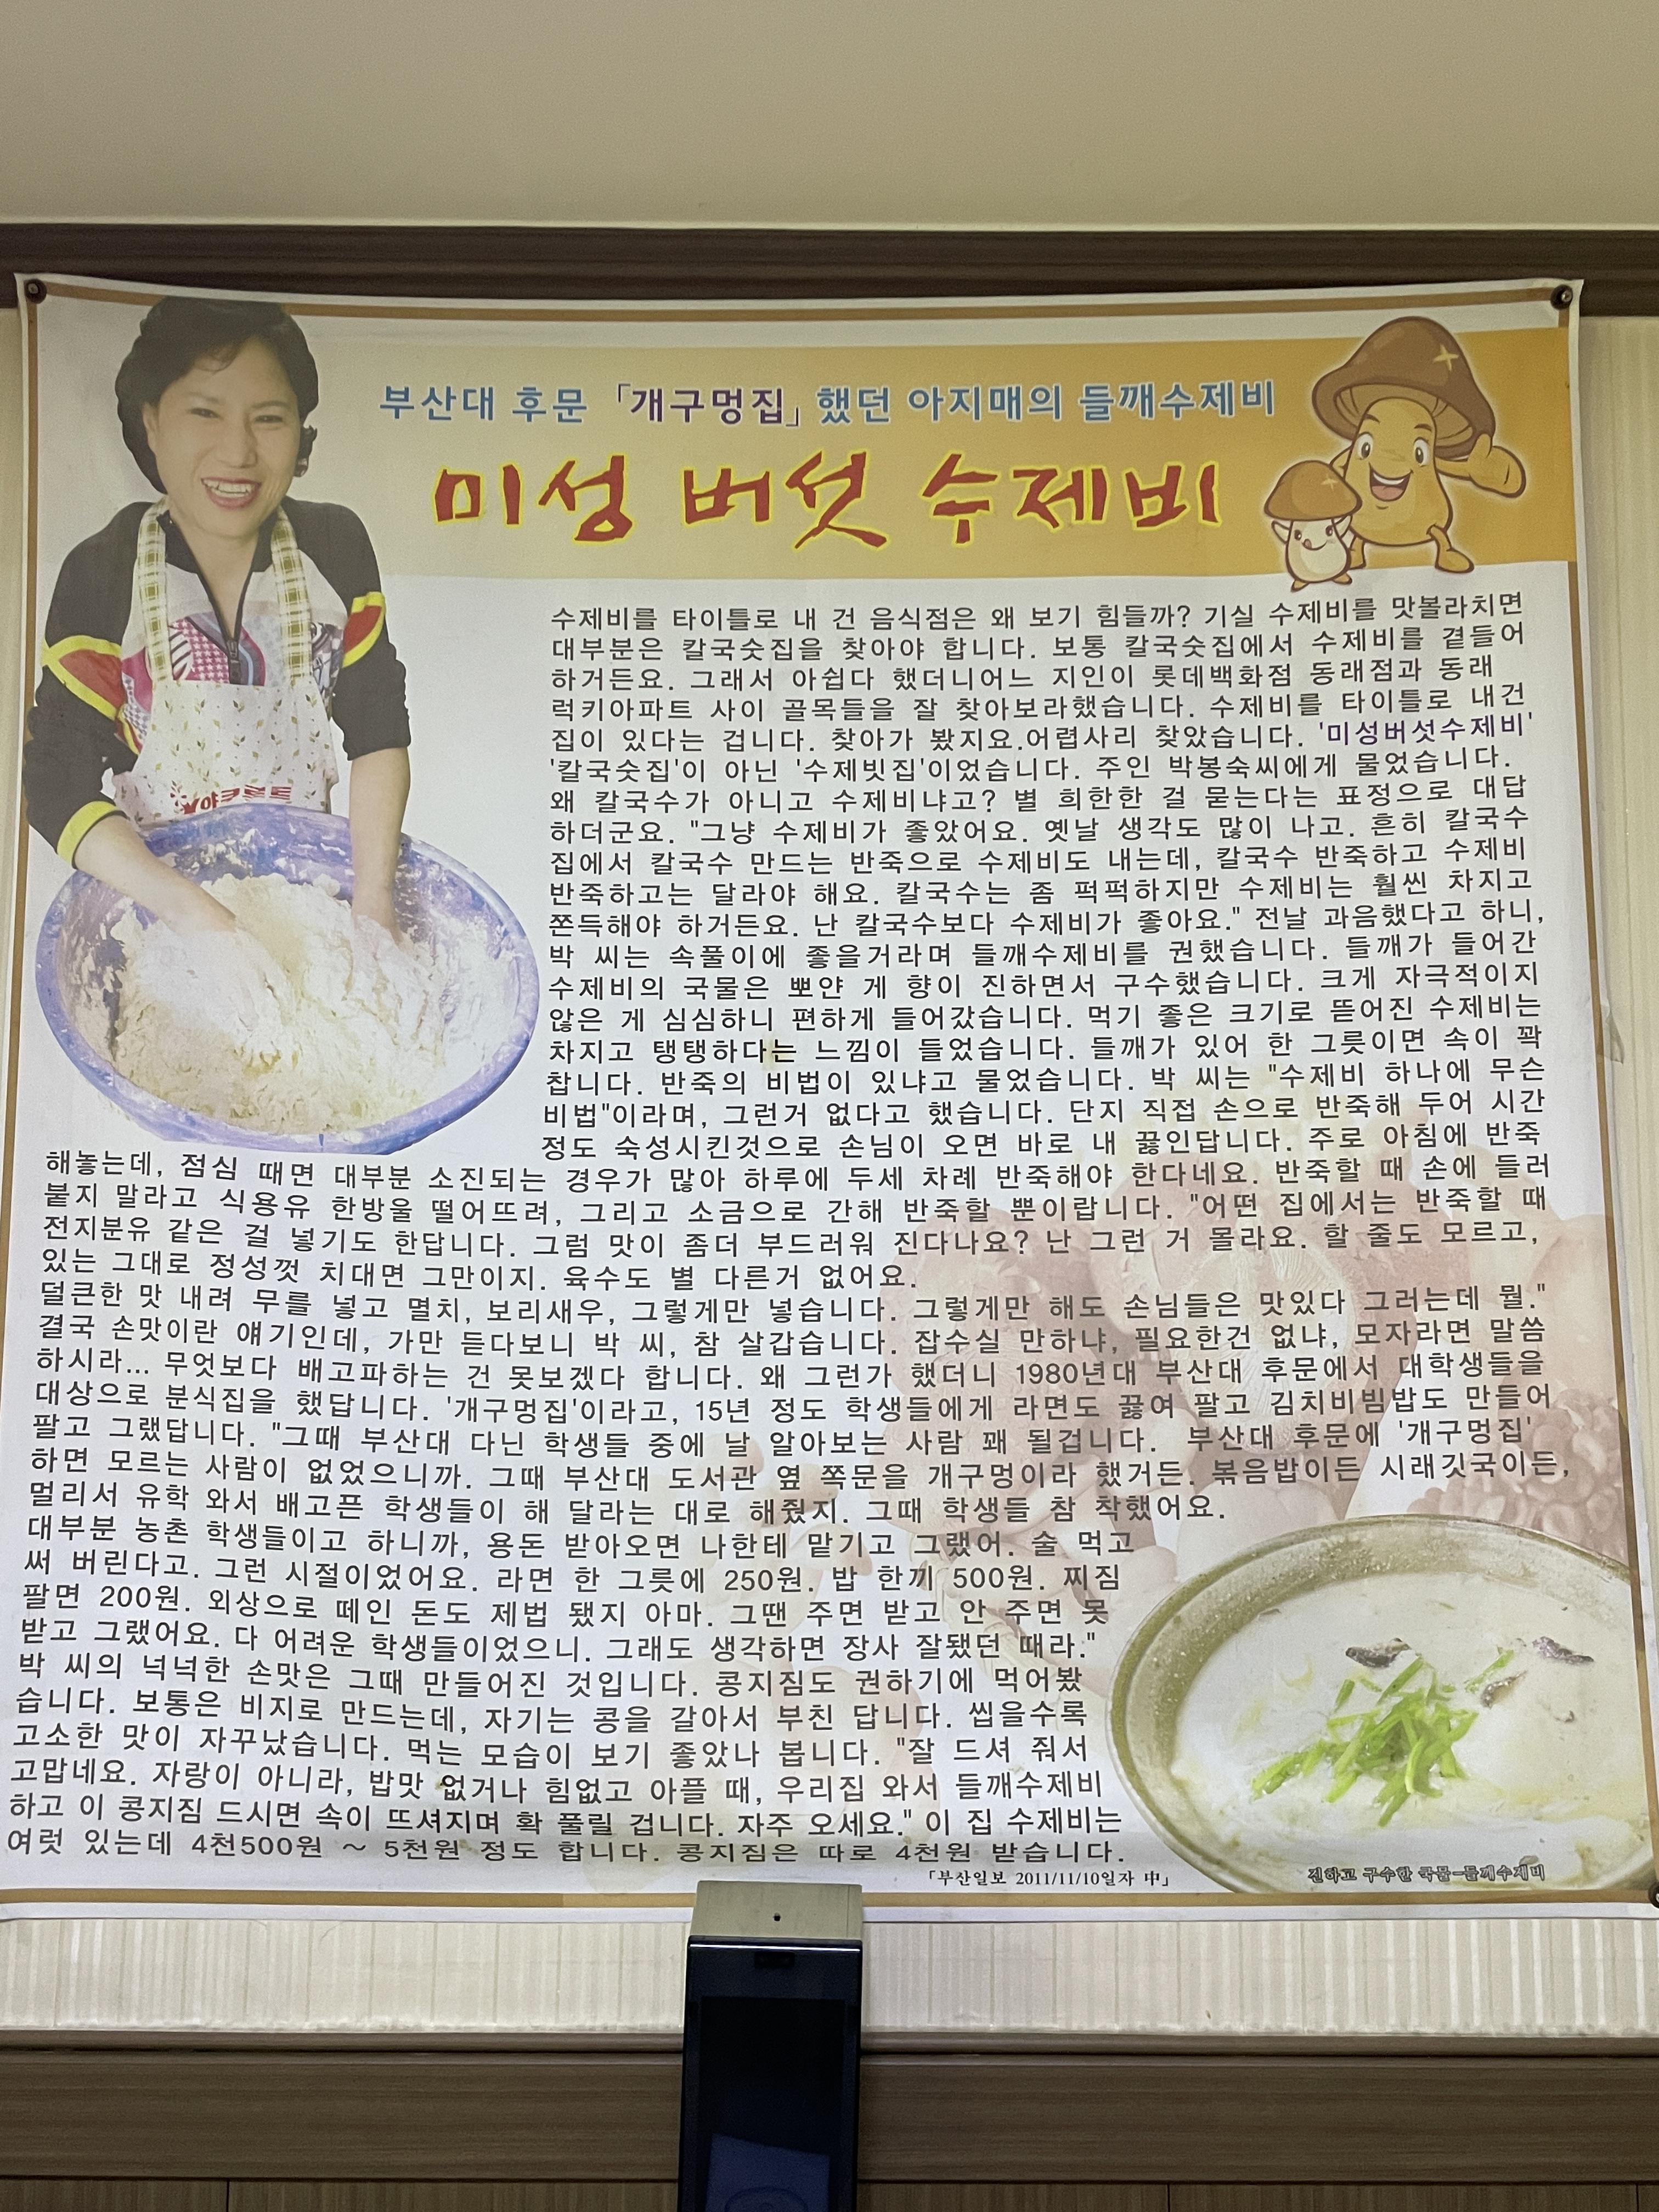 부산대 후문 「개구멍집」 했던 아지매의 들깨수제비
미성 버섯 수제비
수제비를 타이틀로 내 건 음식점은 왜 보기 힘들까? 기실 수제비를 맛볼라치면
대부분은 칼국숫집을 찾아야 합니다. 보통 칼국숫집에서 수제비를 곁들어
하거든요. 그래서 아쉽다 했더니어느 지인이 롯데백화점 동래점과 동래
럭키아파트 사이 골목들을 잘 찾아보라했습니다. 수제비를 타이틀로 내건
집이 있다는 겁니다. 찾아가 봤지요.어렵사리 찾았습니다. '미성버섯수제비'
'칼국숫집'이 아닌 '수제빗집'이었습니다. 주인 박봉숙씨에게 물었습니다.
왜 칼국수가 아니고 수제비냐고? 별 희한한 걸 묻는다는 표정으로 대답
하더군요. "그냥 수제비가 좋았어요. 옛날 생각도 많이 나고. 흔히 칼국수
집에서 칼국수 만드는 반죽으로 수제비도 내는데, 칼국수 반죽하고 수제비
반죽하고는 달라야 해요. 칼국수는 좀 퍽퍽하지만 수제비는 훨씬 차지고
쫀득해야 하거든요. 난 칼국수보다 수제비가 좋아요." 전날 과음했다고 하니,
박 씨는 속풀이에 좋을거라며 들깨수제비를 권했습니다. 들깨가 들어간
수제비의 국물은 뽀얀 게 향이 진하면서 구수했습니다. 크게 자극적이지
않은 게 심심하니 편하게 들어갔습니다. 먹기 좋은 크기로 뜯어진 수제비는
차지고 탱탱하다는 느낌이 들었습니다. 들깨가 있어 한 그릇이면 속이 꽉
찹니다. 반죽의 비법이 있냐고 물었습니다. 박 씨는 "수제비 하나에 무슨
비법"이라며, 그런거 없다고 했습니다. 단지 직접 손으로 반죽해 두어 시간
정도 숙성시킨것으로 손님이 오면 바로 내 끓인답니다. 주로 아침에 반죽
해놓는데, 점심 때면 대부분 소진되는 경우가 많아 하루에 두세 차례 반죽해야 한다네요. 반죽할 때 손에 들러
붙지 말라고 식용유 한방울 떨어뜨려, 그리고 소금으로 간해 반죽할 뿐이랍니다. "어떤 집에서는 반죽할 때
전지분유 같은 걸 넣기도 한답니다. 그럼 맛이 좀더 부드러워 진다나요? 난 그런 거 몰라요. 할 줄도 모르고,
있는 그대로 정성껏 치대면 그만이지. 육수도 별 다른거 없어요.
덜큰한 맛 내려 무를 넣고 멸치, 보리새우, 그렇게만 넣습니다. 그렇게만 해도 손님들은 맛있다 그러는데 뭘."
결국 손맛이란 얘기인데, 가만 듣다보니 박 씨, 참 살갑습니다. 잡수실 만하냐, 필요한건 없냐, 모자라면 말씀
하시라... 무엇보다 배고파하는 건 못보겠다 합니다. 왜 그런가 했더니 1980년대 부산대 후문에서 대학생들을
대상으로 분식집을 했답니다. '개구멍집'이라고, 15년 정도 학생들에게 라면도 끓여 팔고 김치비빔밥도 만들어
팔고 그랬답니다. "그때 부산대 다닌 학생들 중에 날 알아보는 사람 꽤 될겁니다. 부산대 후문에 '개구멍집'
하면 모르는 사람이 없었으니까. 그때 부산대 도서관 옆 쪽문을 개구멍이라 했거든. 볶음밥이든 시래깃국이든,
멀리서 유학 와서 배고픈 학생들이 해 달라는 대로 해줬지. 그때 학생들 참 착했어요.
대부분 농촌 학생들이고 하니까, 용돈 받아오면 나한테 맡기고 그랬어. 술 먹고
써 버린다고. 그런 시절이었어요. 라면 한 그릇에 250원. 밥 한끼 500원. 찌짐
팔면 200원. 외상으로 떼인 돈도 제법 됐지 아마. 그땐 주면 받고 안 주면 못
받고 그랬어요. 다 어려운 학생들이었으니. 그래도 생각하면 장사 잘됐던 때라."
박 씨의 넉넉한 손맛은 그때 만들어진 것입니다. 콩지짐도 권하기에 먹어봤
습니다. 보통은 비지로 만드는데, 자기는 콩을 갈아서 부친 답니다. 씹을수록
고소한 맛이 자꾸났습니다. 먹는 모습이 보기 좋았나 봅니다. "잘 드셔 줘서
고맙네요. 자랑이 아니라, 밥맛 없거나 힘없고 아플 때, 우리집 와서 들깨수제비
하고 이 콩지짐 드시면 속이 뜨셔지며 확 풀릴 겁니다. 자주 오세요." 이 집 수제비는
여럿 있는데 4천500원 ~ 5천원 정도 합니다. 콩지짐은 따로 4천원 받습니다.
「부산일보 2011/11/10일자 中」
진하고 구수한 국물-들깨수제비